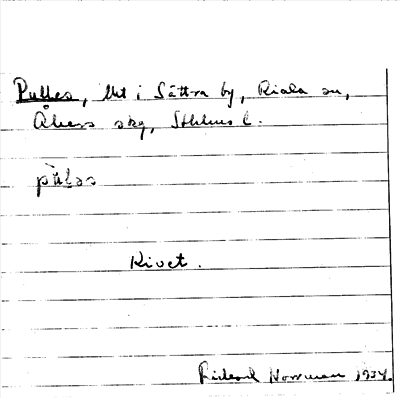 Pulles, lht i Sättra by, Riala sn,
Åkers skg, Sthlms l.
pùlss
Rivet.
Rickard Norrman 1934.